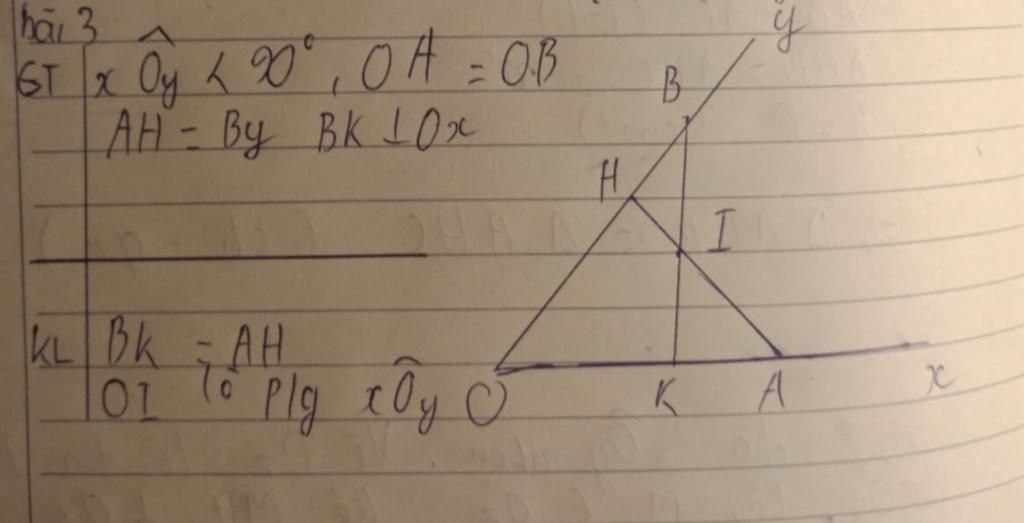 bài 3
GT xÔy < 90°, OA = OB
AH = By BK ⊥ Ox
KL BK = AH
OI là p/g xÔy
y
B
H
I
O K A x